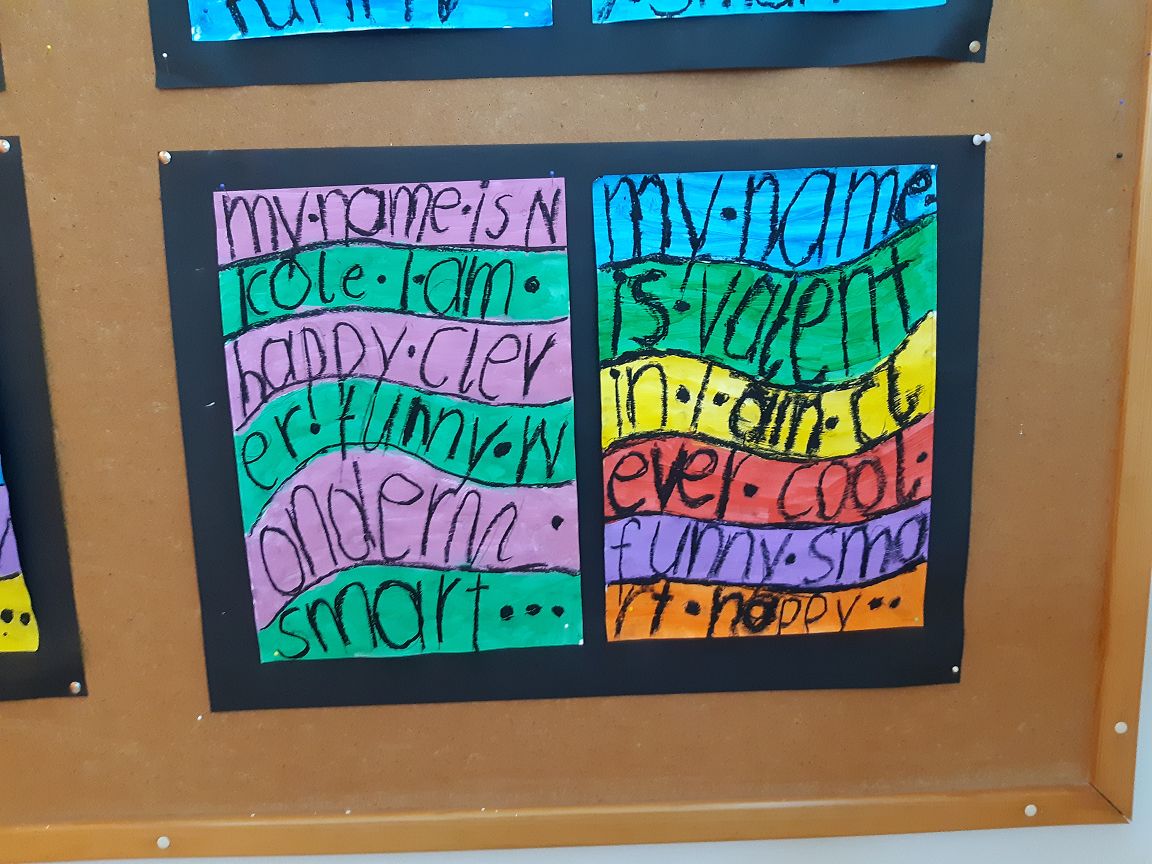 my·name·is N
icole·I·am·
happy·clev
er·funny·w
onderfn·
smart...
my·name·
is·valent
in·I·am·cl
ever·cool·
funny·sma
rt·happy··